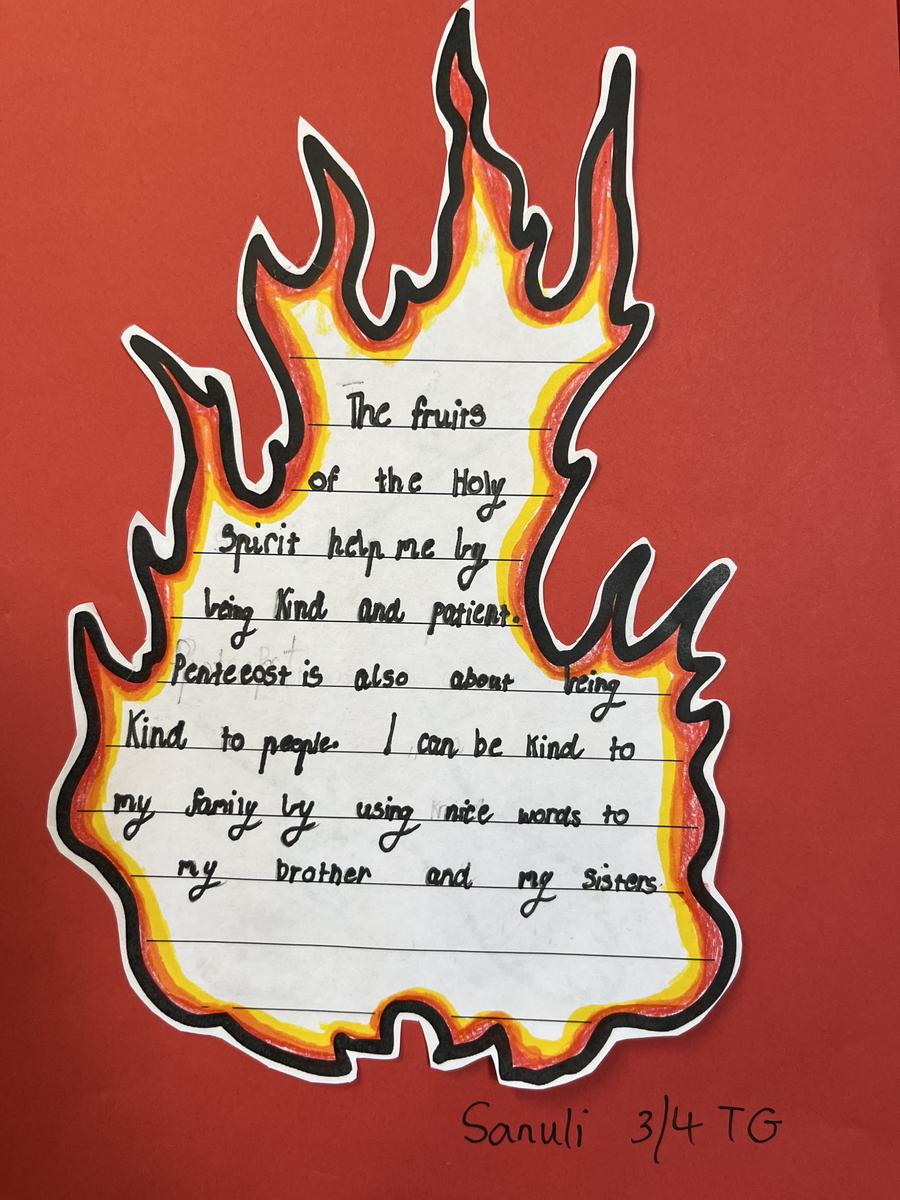 The fruits
of the Holy
Spirit help me by
being Kind and patient.
Pentecost is also about being
Kind to people. I can be Kind to
my family by using nice words to
my brother and my sisters.
Sanuli 3/4 TG